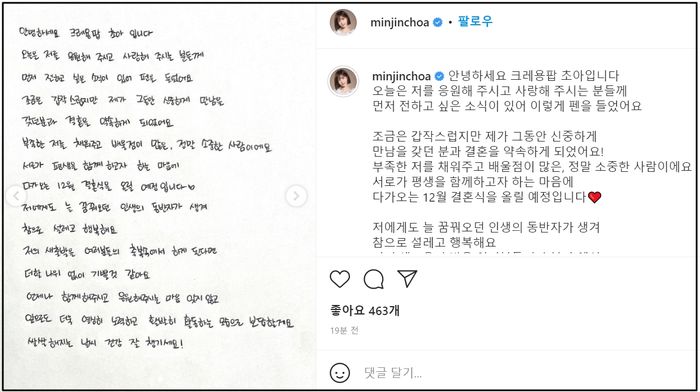 안녕하세요 크레용팝 초아 입니다
오늘은 저를 응원해 주시고 사랑해 주시는 분들께
먼저 전하고 싶은 소식이 있어 펜을 들었어요
조금은 갑작스럽지만 제가 그동안 신중하게 만남을
갖던분과 결혼을 약속하게 되었어요
부족한 저를 채워주고 배울점이 많은, 정말 소중한 사람이에요
서로가 평생을 함께 하고자 하는 마음에
다가오는 12월 결혼식을 올릴 예정입니다
저에게도 늘 꿈꿔오던 인생의 동반자가 생겨
참으로 설레고 행복해요
저의 새출발을 여러분들의 축복속에서 하게 된다면
더할 나위 없이 기쁠것 같아요
언제나 함께해주시고 응원해주시는 마음 잊지 않고
앞으로도 더욱 열심히 노력하고 활발히 활동하는 모습으로 보답할게요
쌀쌀해지는 날씨 건강 잘 챙기세요!
minjinchoa • 팔로우
minjinchoa 안녕하세요 크레용팝 초아입니다
오늘은 저를 응원해 주시고 사랑해 주시는 분들께
먼저 전하고 싶은 소식이 있어 이렇게 펜을 들었어요
조금은 갑작스럽지만 제가 그동안 신중하게
만남을 갖던 분과 결혼을 약속하게 되었어요!
부족한 저를 채워주고 배울점이 많은, 정말 소중한 사람이에요
서로가 평생을 함께하고자 하는 마음에
다가오는 12월 결혼식을 올릴 예정입니다❤️
저에게도 늘 꿈꿔오던 인생의 동반자가 생겨
참으로 설레고 행복해요
좋아요 463개
19분 전
댓글 달기...